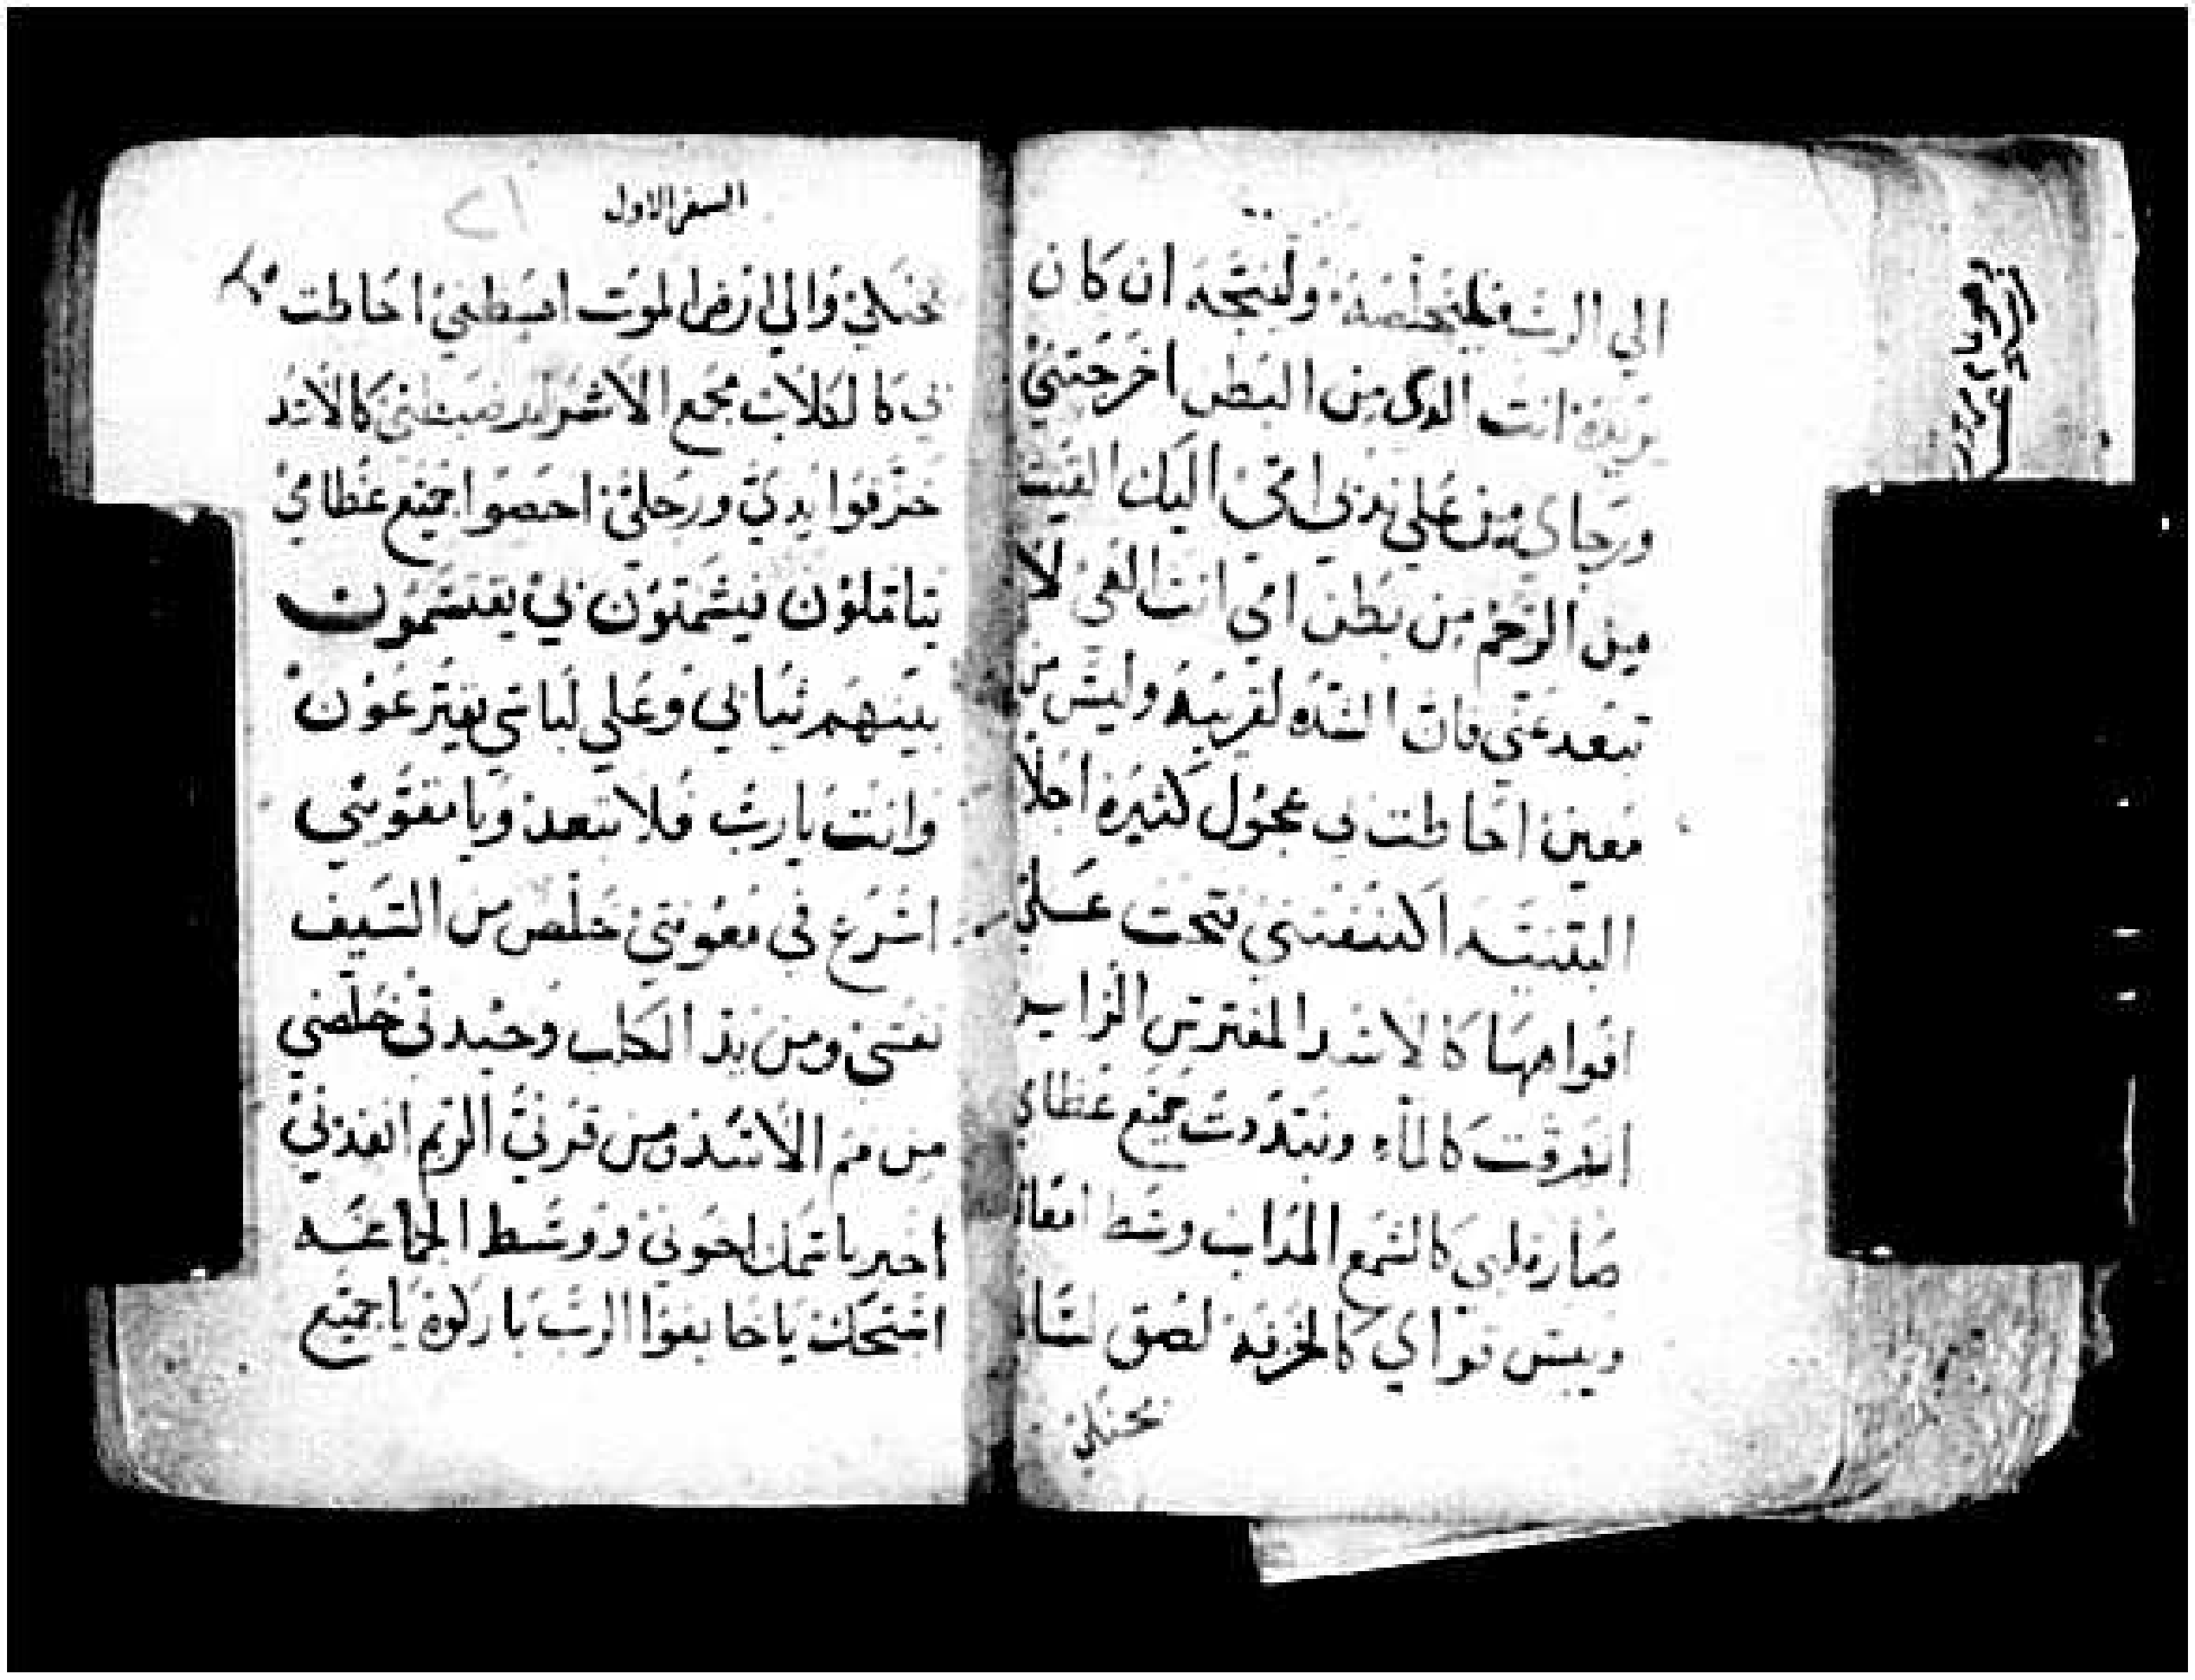 الي الرب فليخلصه ولينجه ان كان
يريده انت الدى من البطن اخرجتني
ورجاى من علي ثدي امي اليك القيت
من الرحم من بطن امي انت الهي لا
تبعد عني فان الشده لقريبه وليس من
معين احاطت بى عجول كثيره اجلا
البثنيه اكتنفتني فتحت علي
افواهها كالاسد المفترس الزاير
اندفقت كالماء وتبددت جميع عظامي
صار قلبي كالشمع المداب وسط امعاي
ويبس قواي كالخزفه لصق لساني
بحنكي
السفر الاول
٢١
بحنكي والي ارض الموت اهبطني احاطت
بى كالكلاب مجمع الاشرار ضبطني كالاسد
خزقوا يدي ورجلي احصوا جميع عظامي
يتاملون فيشمتون بي يقتسمون
بينهم ثيابي وعلي لباسي يقترعون
وانت يارب فلا تبعد ويا مقويني
اسرع في معونتي خلص من السيف
نفسى ومن يد الكلب وحيدتي خلصني
من فم الاسد ومن قرني الريم انقدني
اخبر باسمك اخوتي ووسط الجماعه
امتحك ياخايفوا الرب باركوه ياجميع